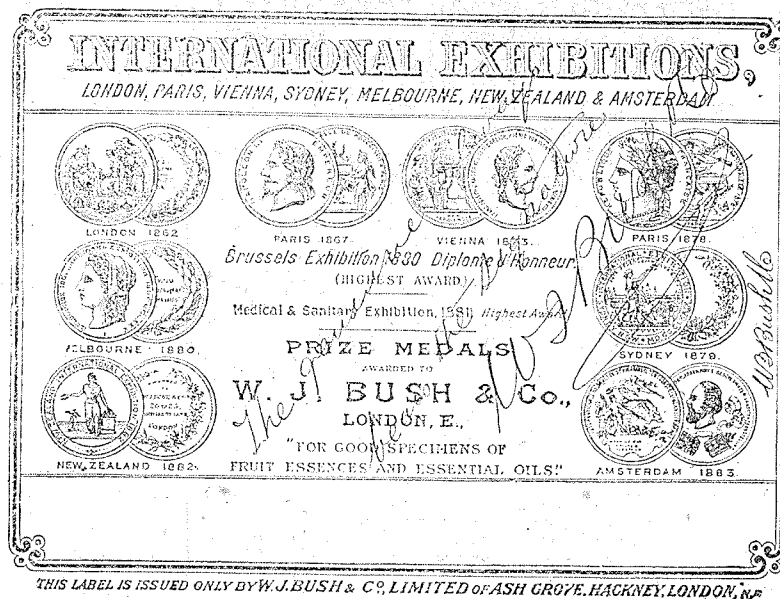 INTERNATIONAL EXHIBITIONS,
LONDON, PARIS, VIENNA, SYDNEY, MELBOURNE, NEW ZEALAND & AMSTERDAM
LONDON 1862
PARIS 1867.
VIENNA 1873.
PARIS 1878.
Brussels Exhibition 1880 Diplome d'Honneur.
(HIGHEST AWARD)
Medical & Sanitary Exhibition, 1881, Highest Award
MELBOURNE 1880.
SYDNEY 1879.
PRIZE MEDALS
AWARDED TO
W. J. BUSH & Co.,
LONDON, E.,
"FOR GOOD SPECIMENS OF
FRUIT ESSENCES AND ESSENTIAL OILS."
NEW ZEALAND 1882.
AMSTERDAM 1883.
The genuine
bear the
signatures of
W J Bush & Co
THIS LABEL IS ISSUED ONLY BY W. J. BUSH & Co, LIMITED OF ASH GROVE, HACKNEY, LONDON, N.E.